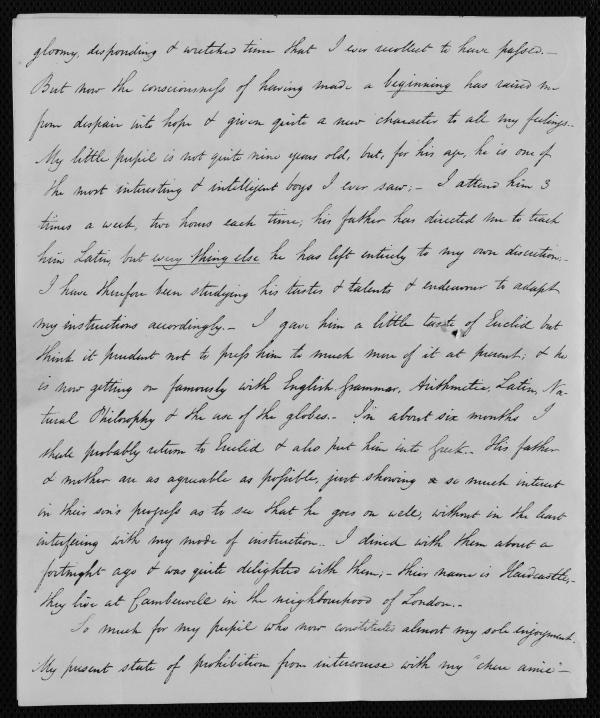 gloomy, desponding & wretched time that I ever recollect to have passed.—
But now the consciousness of having made a beginning has raised me
from despair into hope & given quite a new character to all my feelings.—
My little pupil is not quite nine years old, but, for his age, he is one of
the most interesting & intelligent boys I ever saw;— I attend him 3
times a week, two hours each time; his father has directed me to teach
him Latin, but every thing else he has left entirely to my own discretion.—
I have therefore been studying his tastes & talents & endeavour to adapt
my instructions accordingly.— I gave him a little taste of Euclid but
think it prudent not to press him to much more of it at present; & he
is now getting on famously with English Grammar, Arithmetic, Latin, Na-
tural Philosophy & the use of the globes.— In about six months I
shall probably return to Euclid & also put him into Greek.— His father
& mother are as agreeable as possible, just showing so much interest
in their son's progress as to see that he goes on well, without in the least
interfering with my mode of instruction.. I dined with them about a
fortnight ago & was quite delighted with them;— their name is Hardcastle,—
they live at Camberwell in the neighbourhood of London.—
So much for my pupil who now constitutes almost my sole enjoyment.
My present state of prohibition from intercourse with my "chere amie"—